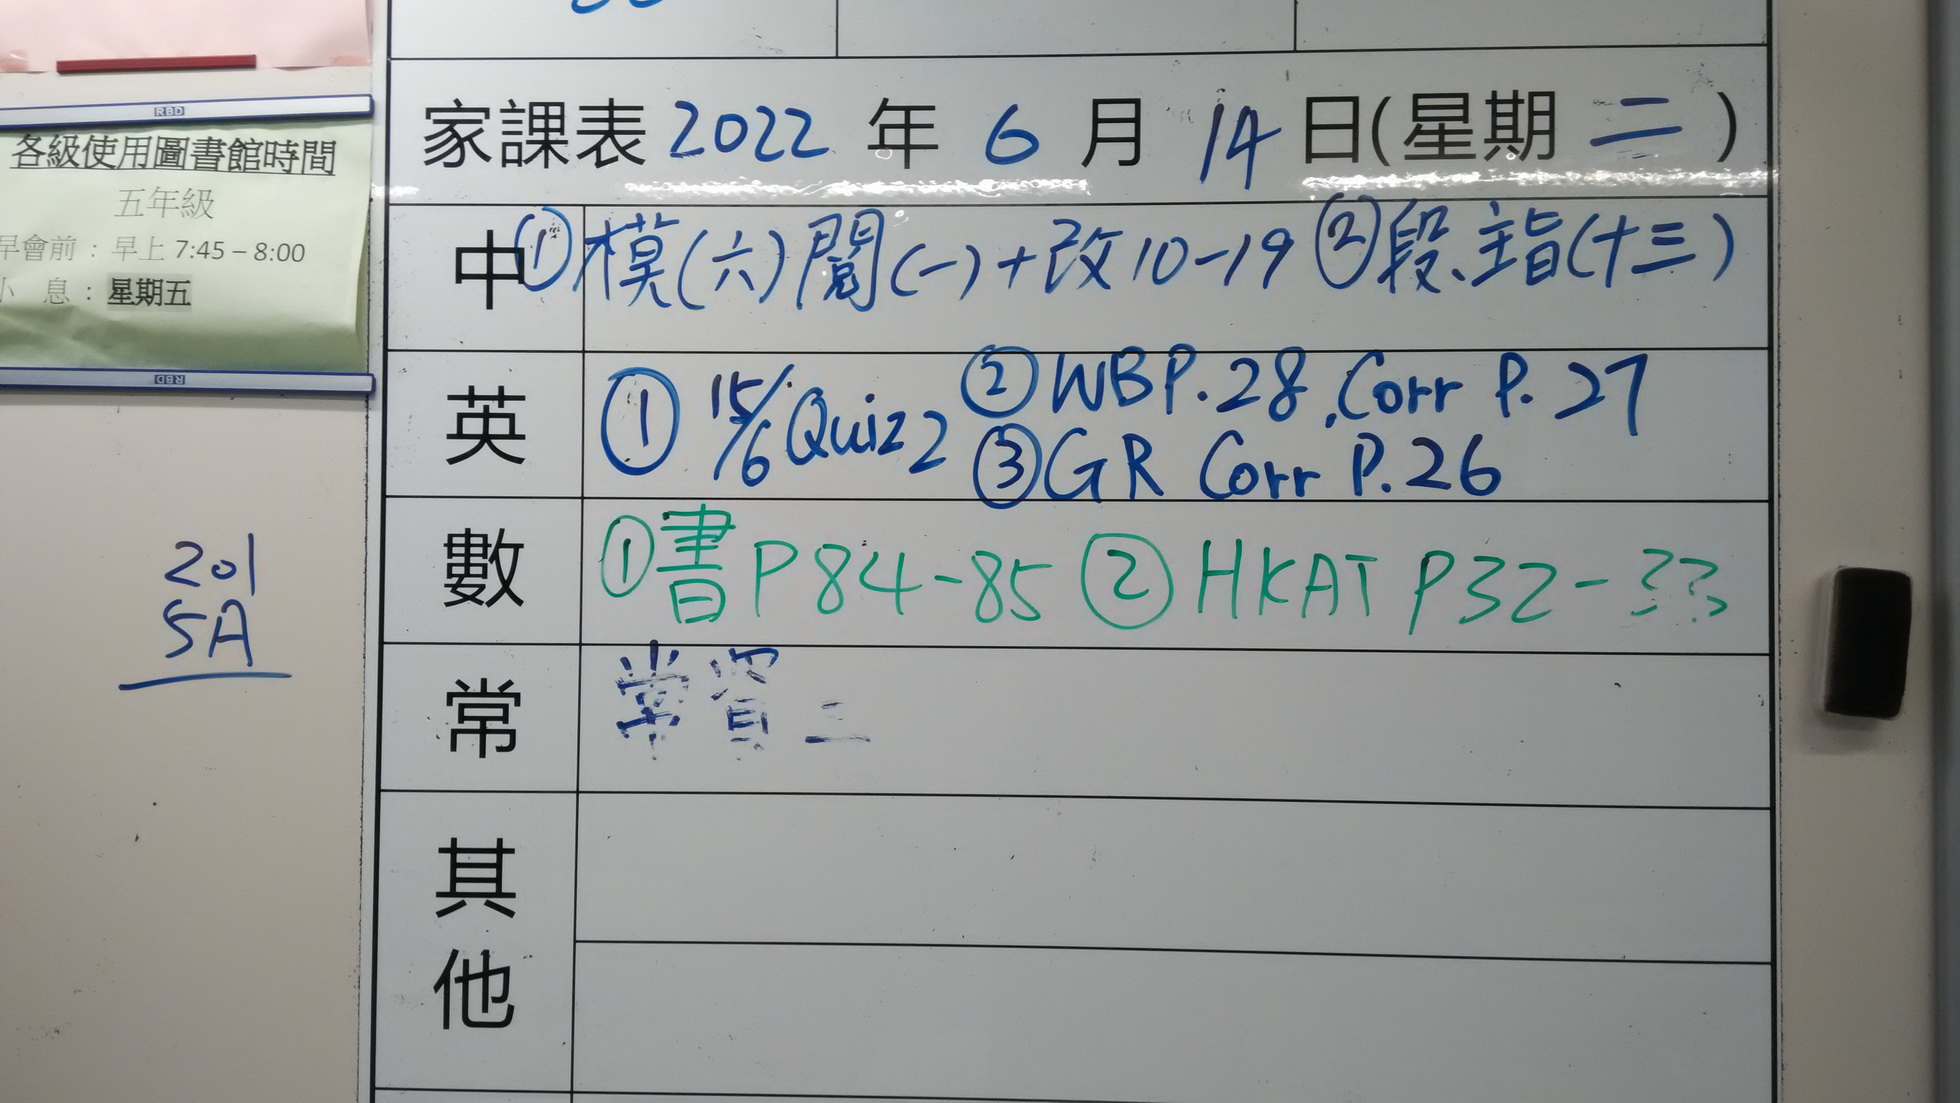 RBD
各級使用圖書館時間
五年級
早會前 : 早上 7:45 – 8:00
小 息 : 星期五
RBD
201
5A
家課表 2022 年 6 月 14 日(星期 二 )
中 ① 模(六)閱(一)+改10-19 ②段、主旨(十三)
英 ① 15/6 Quiz 2 ② WB P.28, Corr P.27
③ GR Corr P.26
數 ①書 P84-85 ② HKAT P32-33
常 常資二
其他